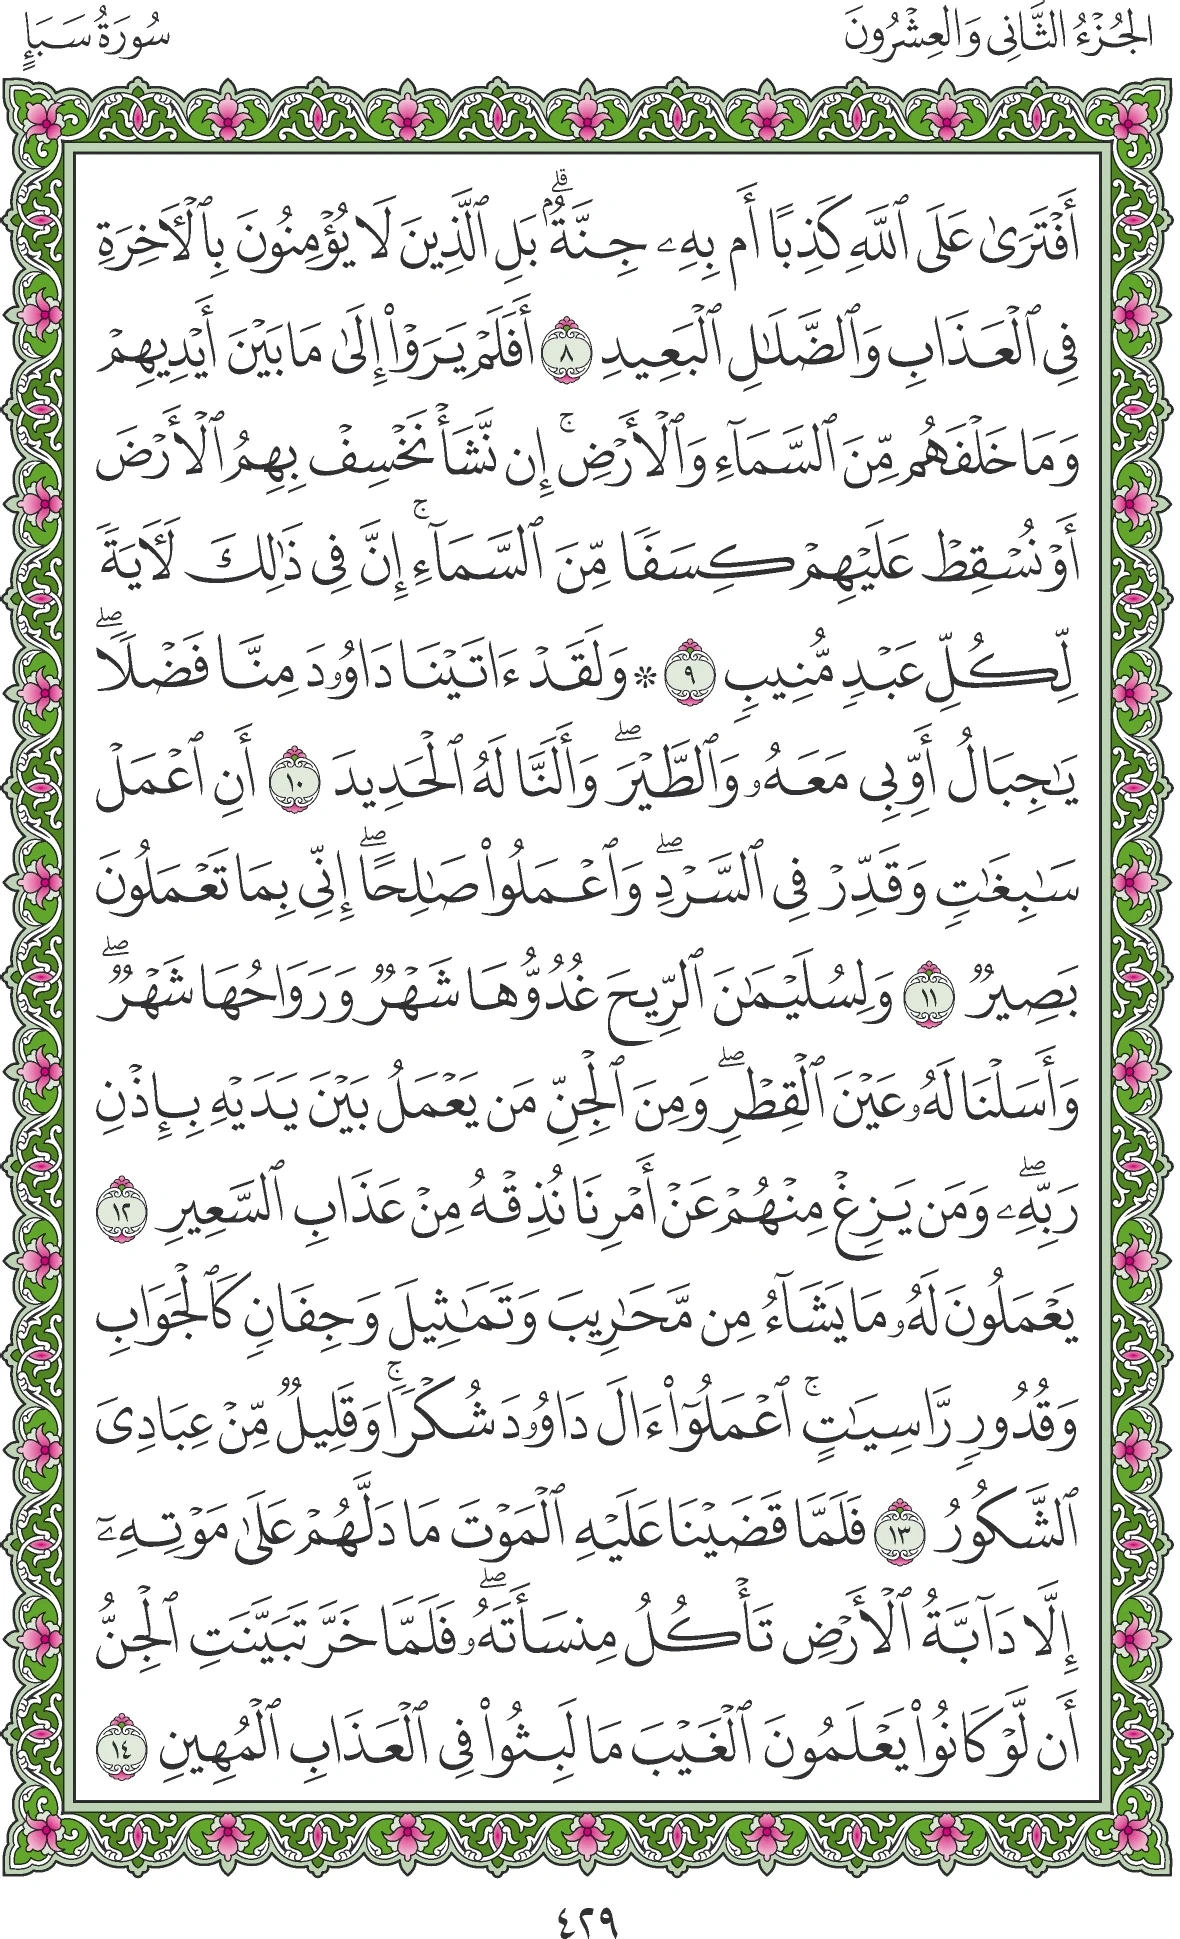 الجُزْءُ الثَّانِي وَالعِشْرُونَ
سُورَةُ سَبَإٍ
أَفْتَرَىٰ عَلَى ٱللَّهِ كَذِبًا أَم بِهِۦ جِنَّةٌۢۗ بَلِ ٱلَّذِينَ لَا يُؤْمِنُونَ بِٱلْأَخِرَةِ
فِى ٱلْعَذَابِ وَٱلضَّلَٰلِ ٱلْبَعِيدِ ٨ أَفَلَمْ يَرَوْا۟ إِلَىٰ مَا بَيْنَ أَيْدِيهِمْ
وَمَا خَلْفَهُم مِّنَ ٱلسَّمَآءِ وَٱلْأَرْضِۚ إِن نَّشَأْ نَخْسِفْ بِهِمُ ٱلْأَرْضَ
أَوْ نُسْقِطْ عَلَيْهِمْ كِسَفًا مِّنَ ٱلسَّمَآءِۚ إِنَّ فِى ذَٰلِكَ لَأَيَةً
لِّكُلِّ عَبْدٍ مُّنِيبٍ ٩ ۞ وَلَقَدْ ءَاتَيْنَا دَاوُۥدَ مِنَّا فَضْلًاۖ
يَٰجِبَالُ أَوِّبِى مَعَهُۥ وَٱلطَّيْرَۖ وَأَلَنَّا لَهُ ٱلْحَدِيدَ ١٠ أَنِ ٱعْمَلْ
سَٰبِغَٰتٍ وَقَدِّرْ فِى ٱلسَّرْدِۖ وَٱعْمَلُوا۟ صَٰلِحًاۖ إِنِّى بِمَا تَعْمَلُونَ
بَصِيرٌ ١١ وَلِسُلَيْمَٰنَ ٱلرِّيحَ غُدُوُّهَا شَهْرٌ وَرَوَاحُهَا شَهْرٌۖ
وَأَسَلْنَا لَهُۥ عَيْنَ ٱلْقِطْرِۖ وَمِنَ ٱلْجِنِّ مَن يَعْمَلُ بَيْنَ يَدَيْهِ بِإِذْنِ
رَبِّهِۦۖ وَمَن يَزِغْ مِنْهُمْ عَنْ أَمْرِنَا نُذِقْهُ مِنْ عَذَابِ ٱلسَّعِيرِ ١٢
يَعْمَلُونَ لَهُۥ مَا يَشَآءُ مِن مَّحَٰرِيبَ وَتَمَٰثِيلَ وَجِفَانٍ كَٱلْجَوَابِ
وَقُدُورٍ رَّاسِيَٰتٍۚ ٱعْمَلُوٓا۟ ءَالَ دَاوُۥدَ شُكْرًاۚ وَقَلِيلٌ مِّنْ عِبَادِىَ
ٱلشَّكُورُ ١٣ فَلَمَّا قَضَيْنَا عَلَيْهِ ٱلْمَوْتَ مَا دَلَّهُمْ عَلَىٰ مَوْتِهِۦٓ
إِلَّا دَآبَّةُ ٱلْأَرْضِ تَأْكُلُ مِنسَأَتَهُۥۖ فَلَمَّا خَرَّ تَبَيَّنَتِ ٱلْجِنُّ
أَن لَّوْ كَانُوا۟ يَعْلَمُونَ ٱلْغَيْبَ مَا لَبِثُوا۟ فِى ٱلْعَذَابِ ٱلْمُهِينِ ١٤
٤٢٩